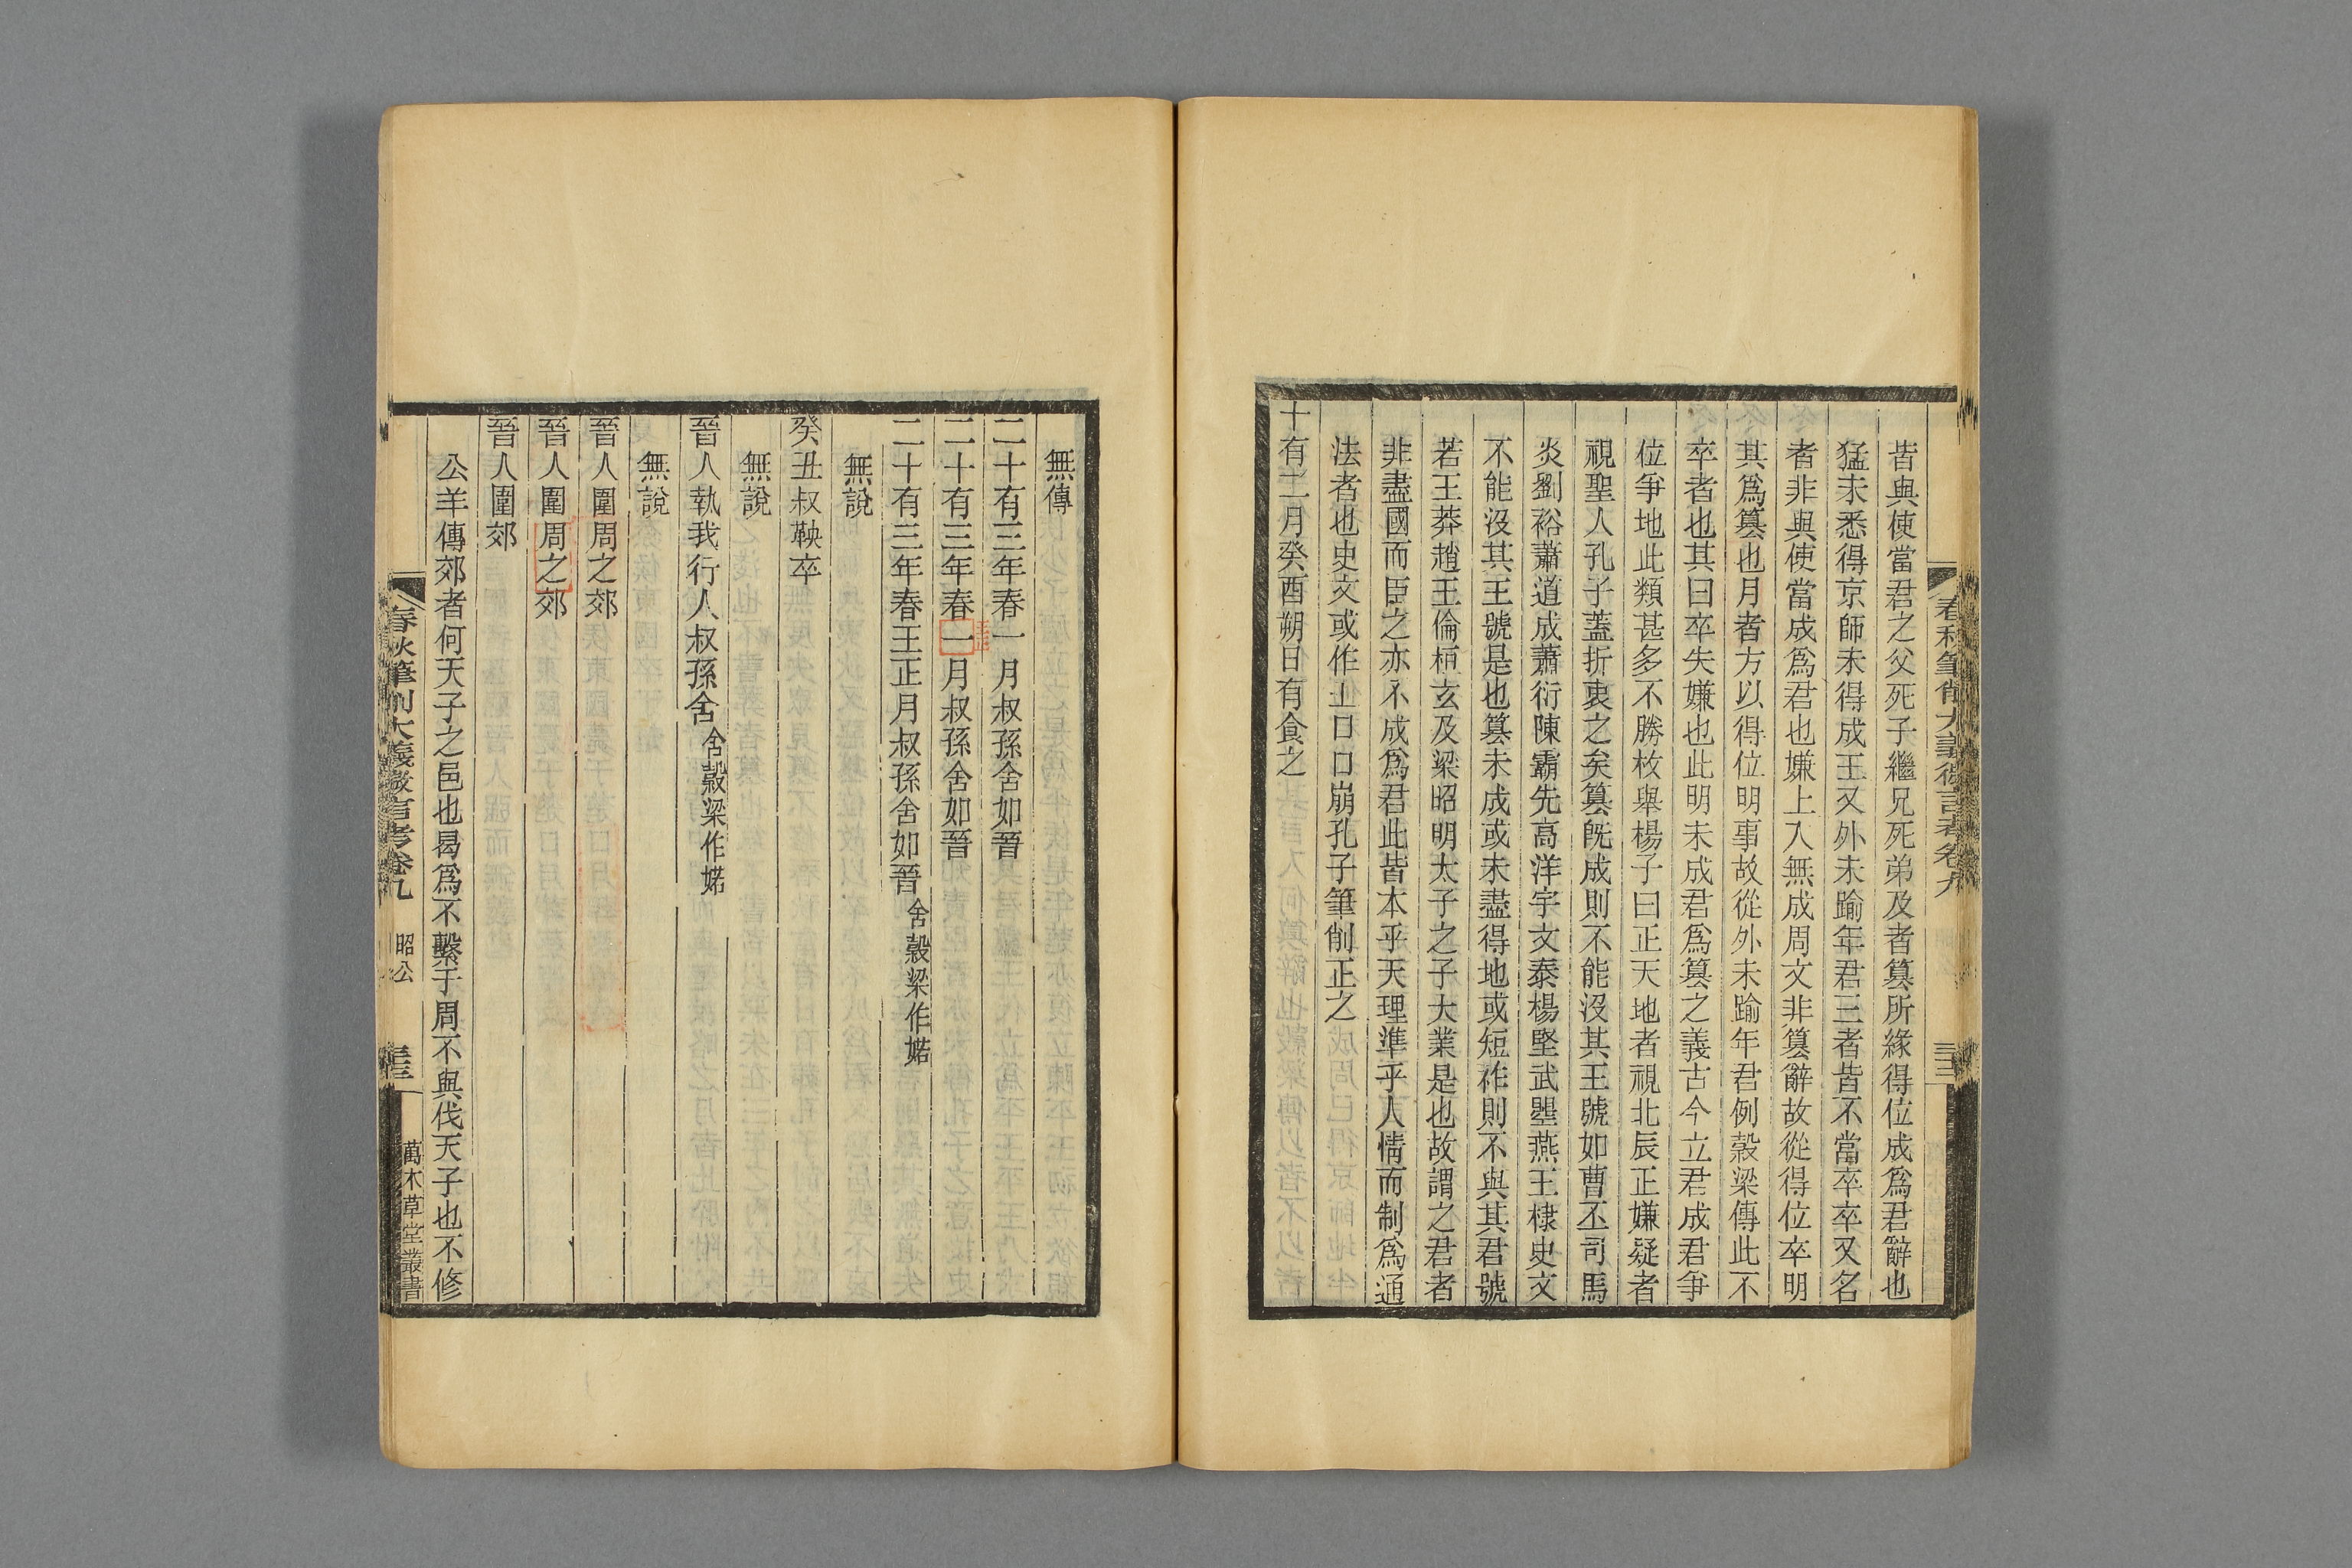 春秋筆削大義微言考卷九
皆與使當君之父死子繼兄死弟及者篡所緣得位成爲君辭也
猛未悉得京師未得成王又外未踰年君三者皆不當卒卒又名
者非與使當成爲君也嫌上入無成周文非篡辭故從得位卒明
其爲篡也月者方以得位明事故從外未踰年君例穀梁傳此不
卒者也其曰卒失嫌也此明未成君爲篡之義古今立君成君爭
位爭地此類甚多不勝枚舉楊子曰正天地者視北辰正嫌疑者
視聖人孔子蓋折衷之矣篡旣成則不能沒其王號如曹丕司馬
炎劉裕蕭道成蕭衍陳霸先高洋宇文泰楊堅武曌燕王棣史文
不能沒其王號是也篡未成或未盡得地或短祚則不與其君號
若王莽趙王倫桓玄及梁昭明太子之子大業是也故謂之君者
非盡國而臣之亦不成爲君此皆本乎天理準乎人情而制爲通
法者也史文或作王口口崩孔子筆削正之
十有二月癸酉朔日有食之
無傳
二十有三年春一月叔孫舍如晉
二十有三年春一王正月叔孫舍如晉
二十有三年春王正月叔孫舍如晉舍穀梁作婼
無說
癸丑叔鞅卒
無說
晉人執我行人叔孫舍舍穀梁作婼
無說
晉人圍周之郊
晉人圍周之郊
晉人圍郊
公羊傳郊者何天子之邑也曷爲不繫于周不與伐天子也不修
春秋筆削大義微言考卷九 昭公 三十三 萬木草堂叢書